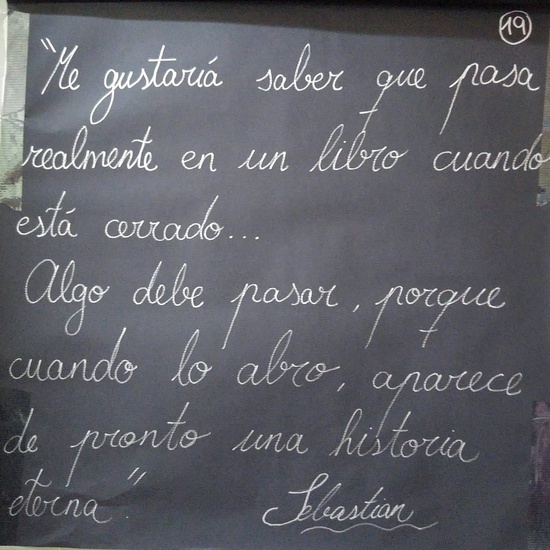 19
"Me gustaría saber que pasa
realmente en un libro cuando
está cerrado...
Algo debe pasar, porque
cuando lo abro, aparece
de pronto una historia
eterna".
Sebastian